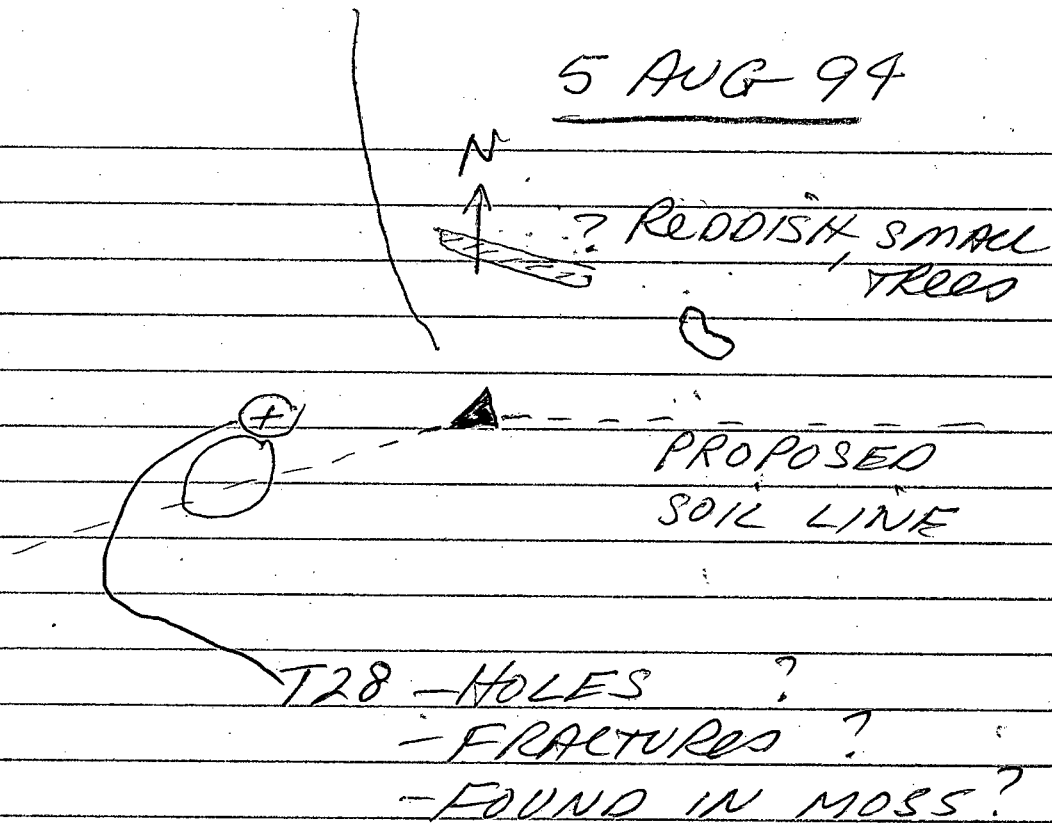 5 AUG 94
N
? REDDISH, SMALL
TREES
+
PROPOSED
SOIL LINE
T28 - HOLES ?
- FRACTURES ?
- FOUND IN MOSS?